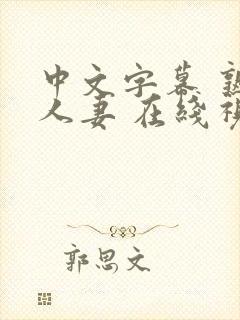 中文字幕
人妻 在线
郭思文